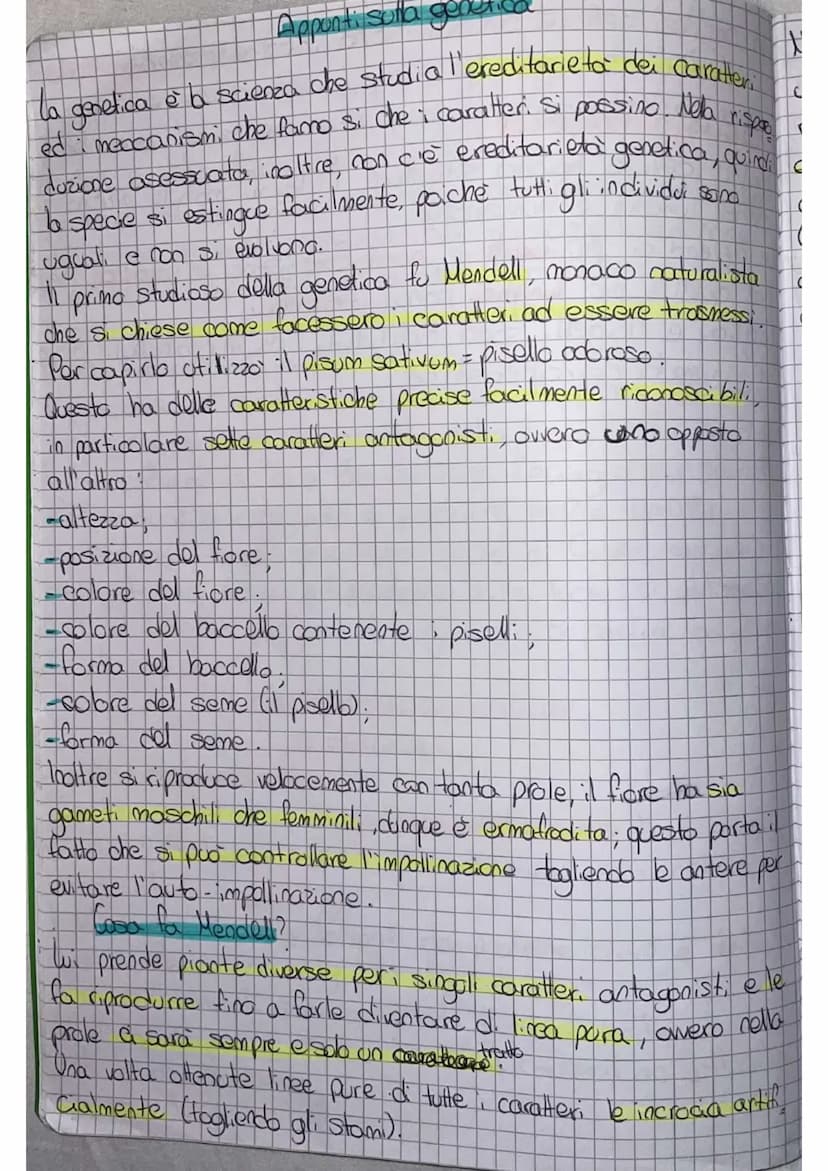 Appunti sulla genetica
la genetica è la scienza che studia l'ereditarietà dei caratteri
ed i meccanismi che fanno si che i caratteri si passino. Nella ripro
duzione asessuata, inoltre, non c'è ereditarietà genetica, quindi
la specie si estingue facilmente, poichè tutti gli individui sono
uguali e non si evolvono.
Il primo studioso della genetica fu Mendell, monaco naturalista
che si chiese come facessero i caratteri ad essere trasmessi.
Per capirlo utilizzò il pisum sativum = pisello odoroso.
Questo ha delle caratteristiche precise facilmente riconoscibili,
in particolare sette caratteri antagonisti, ovvero uno opposto
all'altro:
-altezza;
-posizione del fiore;
-colore del fiore;
-colore del baccello contenente i piselli;
-forma del baccello;
-colore del seme (il pisello);
-forma del seme.
Inoltre si riproduce velocemente con tanta prole, il fiore ha sia
gameti maschili che femminili, dunque è ermafrodita; questo porta il
fatto che si può controllare l'impollinazione togliendo le antere per
evitare l'auto-impollinazione.
Cosa fa Mendell?
Lui prende piante diverse per i singoli caratteri antagonisti e le
fa riprodurre fino a farle diventare di linea pura, ovvero nella
prole ci sarà sempre e solo un tratto.
Una volta ottenute linee pure di tutte i caratteri le incrocia artifi
cialmente (togliendo gli stami).